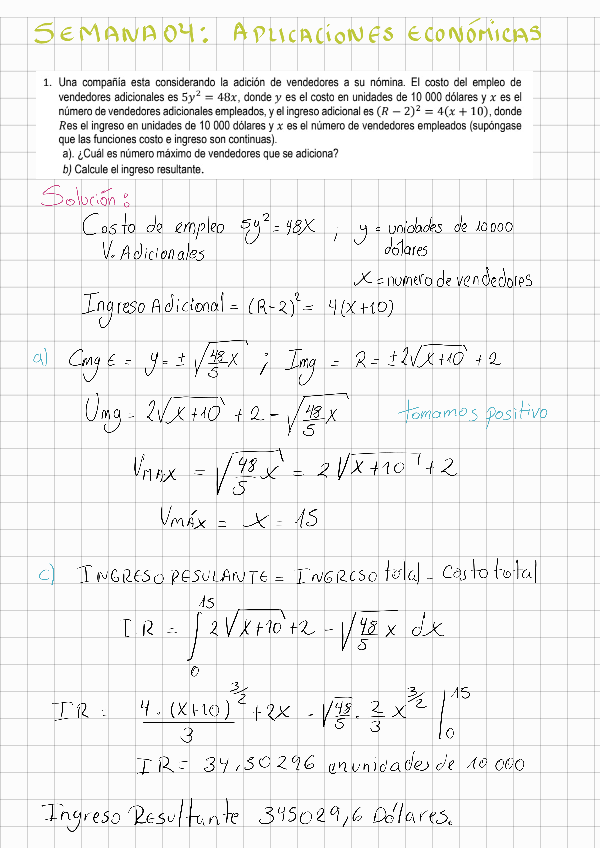 SEMANA 04: APLICACIONES ECONÓMICAS
1. Una compañía esta considerando la adición de vendedores a su nómina. El costo del empleo de
vendedores adicionales es 5y² = 48x, donde y es el costo en unidades de 10 000 dólares y x es el
número de vendedores adicionales empleados, y el ingreso adicional es (R − 2)² = 4(x + 10), donde
Res el ingreso en unidades de 10 000 dólares y x es el número de vendedores empleados (supóngase
que las funciones costo e ingreso son continuas).
a). ¿Cuál es número máximo de vendedores que se adiciona?
b) Calcule el ingreso resultante.
Solución:
Costo de empleo 5y² = 48X ; y = unidades de 10000
V. Adicionales dólares
X = numero de vendedores
Ingreso Adicional = (R-2)² = 4(X+10)
a) Cmg E = y = ± √(48/5 X) ; Img = R = ±2√(X+10) + 2
Umg = 2√(X+10) + 2 - √(48/5 X) tomamos positivo
VMAX = √(48/5 X) = 2√(X+10) + 2
VMÁX = X = 15
c) INGRESO RESULANTE = INGRESO total - Costo total
IR = ∫₀¹⁵ 2√(X+10) + 2 - √(48/5 X) dX
IR = 4·(X+10)^(3/2)/3 + 2X - √(48/5) · 2/3 X^(3/2) |₀¹⁵
IR = 34,50296 en unidades de 10 000
Ingreso Resultante 345029,6 Dólares.